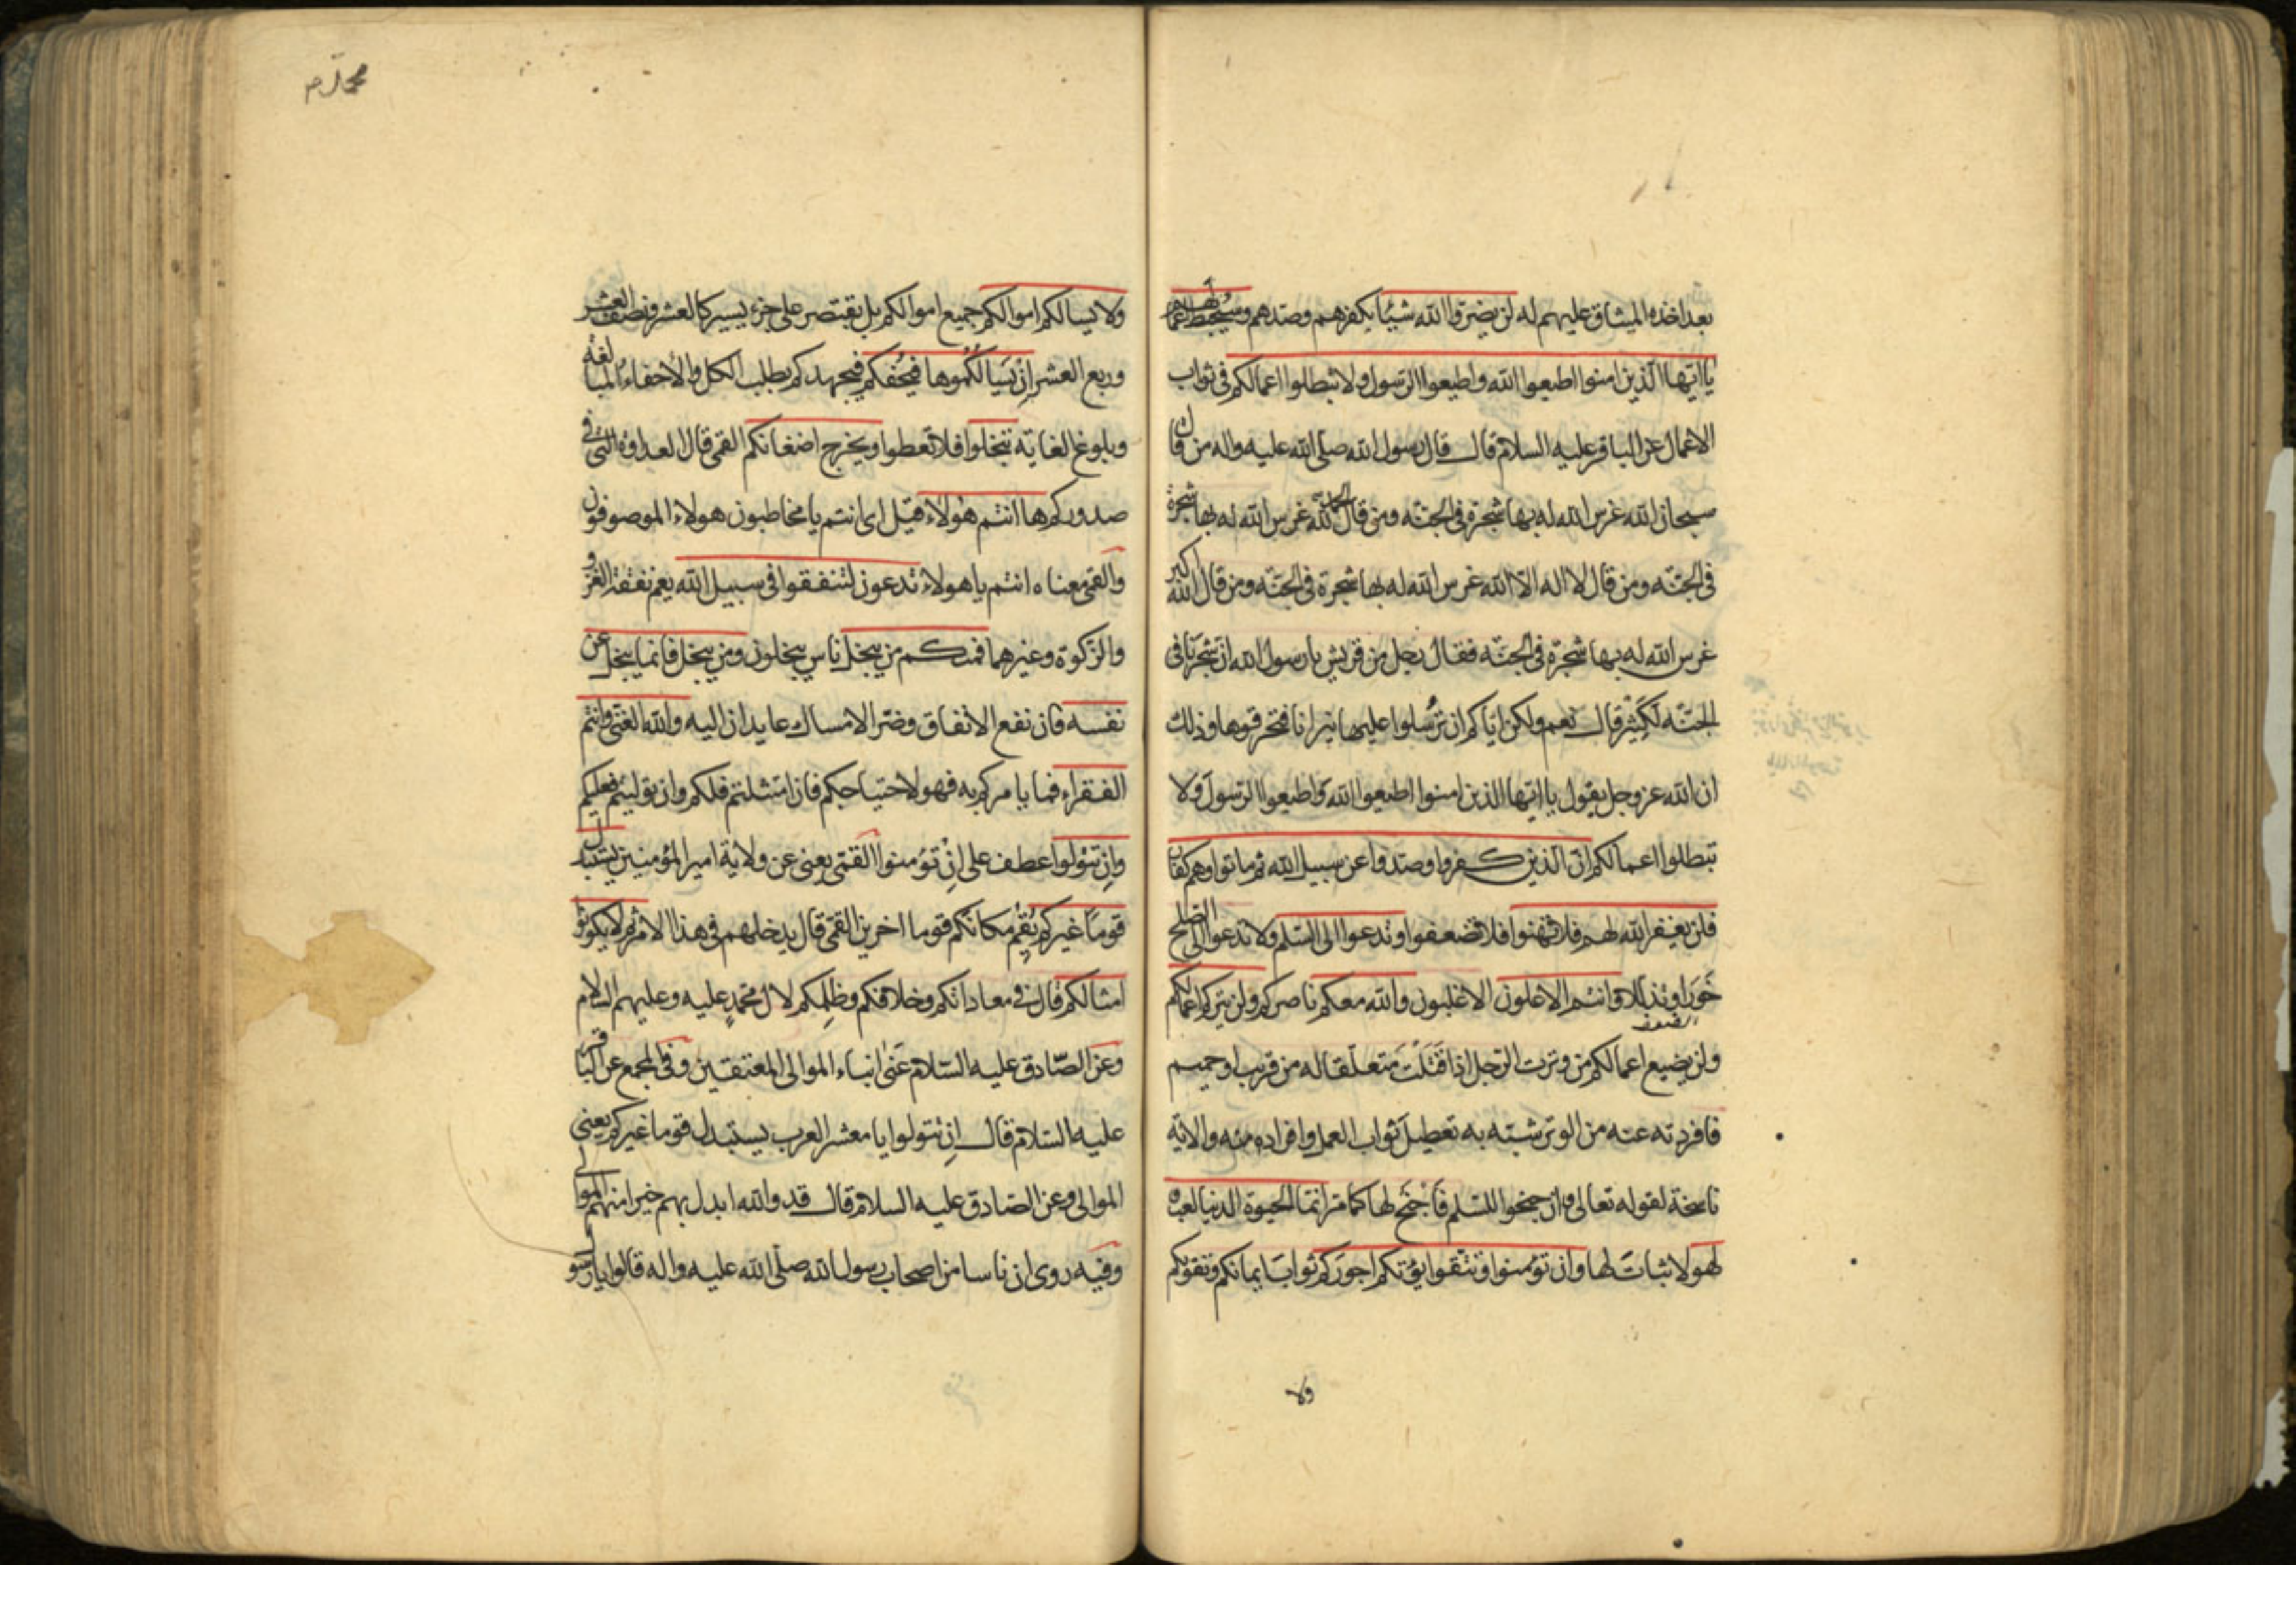 بعد اخذه الميثاق عليهم له لن يضروا الله شيئا بكفرهم وصدهم وسيحبط اعمالهم
يا ايها الذين امنوا اطيعوا الله واطيعوا الرسول ولا تبطلوا اعمالكم فى ثواب
الاعمال عن الباقر عليه السلام قال قال رسول الله صلى الله عليه واله من قال
سبحان الله غرس الله له بها شجرة فى الجنّة ومن قال الحمد لله غرس الله له بها شجرة
فى الجنّة ومن قال لا اله الّا الله غرس الله له بها شجرة فى الجنّة ومن قال الله اكبر
غرس الله له بها شجرة فى الجنّة فقال رجل من قريش يا رسول الله ان شجرنا فى
الجنّة لكثير قال نعم ولكن ايّاكم ان ترسلوا عليها نيرانا فتحرقوها وذلك
ان الله عزوجل يقول يا ايها الذين امنوا اطيعوا الله واطيعوا الرسول ولا
تبطلوا اعمالكم انّ الّذين كفروا وصدوا عن سبيل الله ثم ماتوا وهم كفار
فلن يغفر الله لهم فلا تهنوا فلا تضعفوا وتدعوا الى السلم ولا تدعوا الى الصلح
خَوَرا وتذللا وانتم الاعلون الاغلبون والله معكم ناصركم ولن يتركم اعمالكم
الضعف
ولن يضيع اعمالكم من وترت الرجل اذا قَتَلْتَ متعلّقا له من قريب او حميم
فافردته عنه من الوتر شبّه به تعطيل ثواب العمل وافراده منه والاية
ناسخة لقوله تعالى وان جنحوا للسلم فاجنح لها كما مر انّما الحيوة الدنيا لعب
لهو لا ثبات لها وان تؤمنوا وتتقوا يؤتكم اجوركم ثواب ايمانكم وتقويكم
ولا
محمد م
ولا يسالكم اموالكم جميع اموالكم بل يقتصر على جزء يسير كالعشر ونصف العشر
وربع العشر ان يسالكموها فيحفكم فيجهدكم بطلب الكل والاحفاء المبالغة
وبلوغ الغاية تبخلوا فلا تعطوا ويخرج اضغانكم القمى قال العداوة التى فى
صدوركم ها انتم هؤلاء قيل اى انتم يا مخاطبون هولاء الموصوفون
والقمى معناه انتم يا هولاء تدعون لتنفقوا فى سبيل الله يعم نفقة الغزو
والزكوة وغيرهما فمنكم من يبخل ناس يبخلون ومن يبخل فانما يبخل عن
نفسه فان نفع الانفاق وضر الامساك عايدان اليه والله الغنى وانتم
الفقراء فما يامركم به فهو لاحتياجكم فان امتثلتم فلكم وان توليتم فعليكم
وان تتولوا عطف على ان تؤمنوا القمى يعنى عن ولاية امير المؤمنين يستبدل
قوما غيركم يُقِم مكانكم قوما اخرين القمى قال يدخلهم فى هذا الامر ثم لا يكونوا
امثالكم قال فى معاداتكم وخلافكم وظلمكم لال محمد عليه وعليهم السلام
وعن الصّادق عليه السلام عَنىٰ ابناء الموالى المعتقين وفى المجمع عن الباقر
عليه السلام قال ان تتولوا يا معشر العرب يستبدل قوما غيركم يعنى
الموالى وعن الصادق عليه السلام قال قد والله ابدل بهم خيرا منهم الموالى
وفيه روى ان ناسا من اصحاب رسول الله صلى الله عليه واله قالوا يا رسول